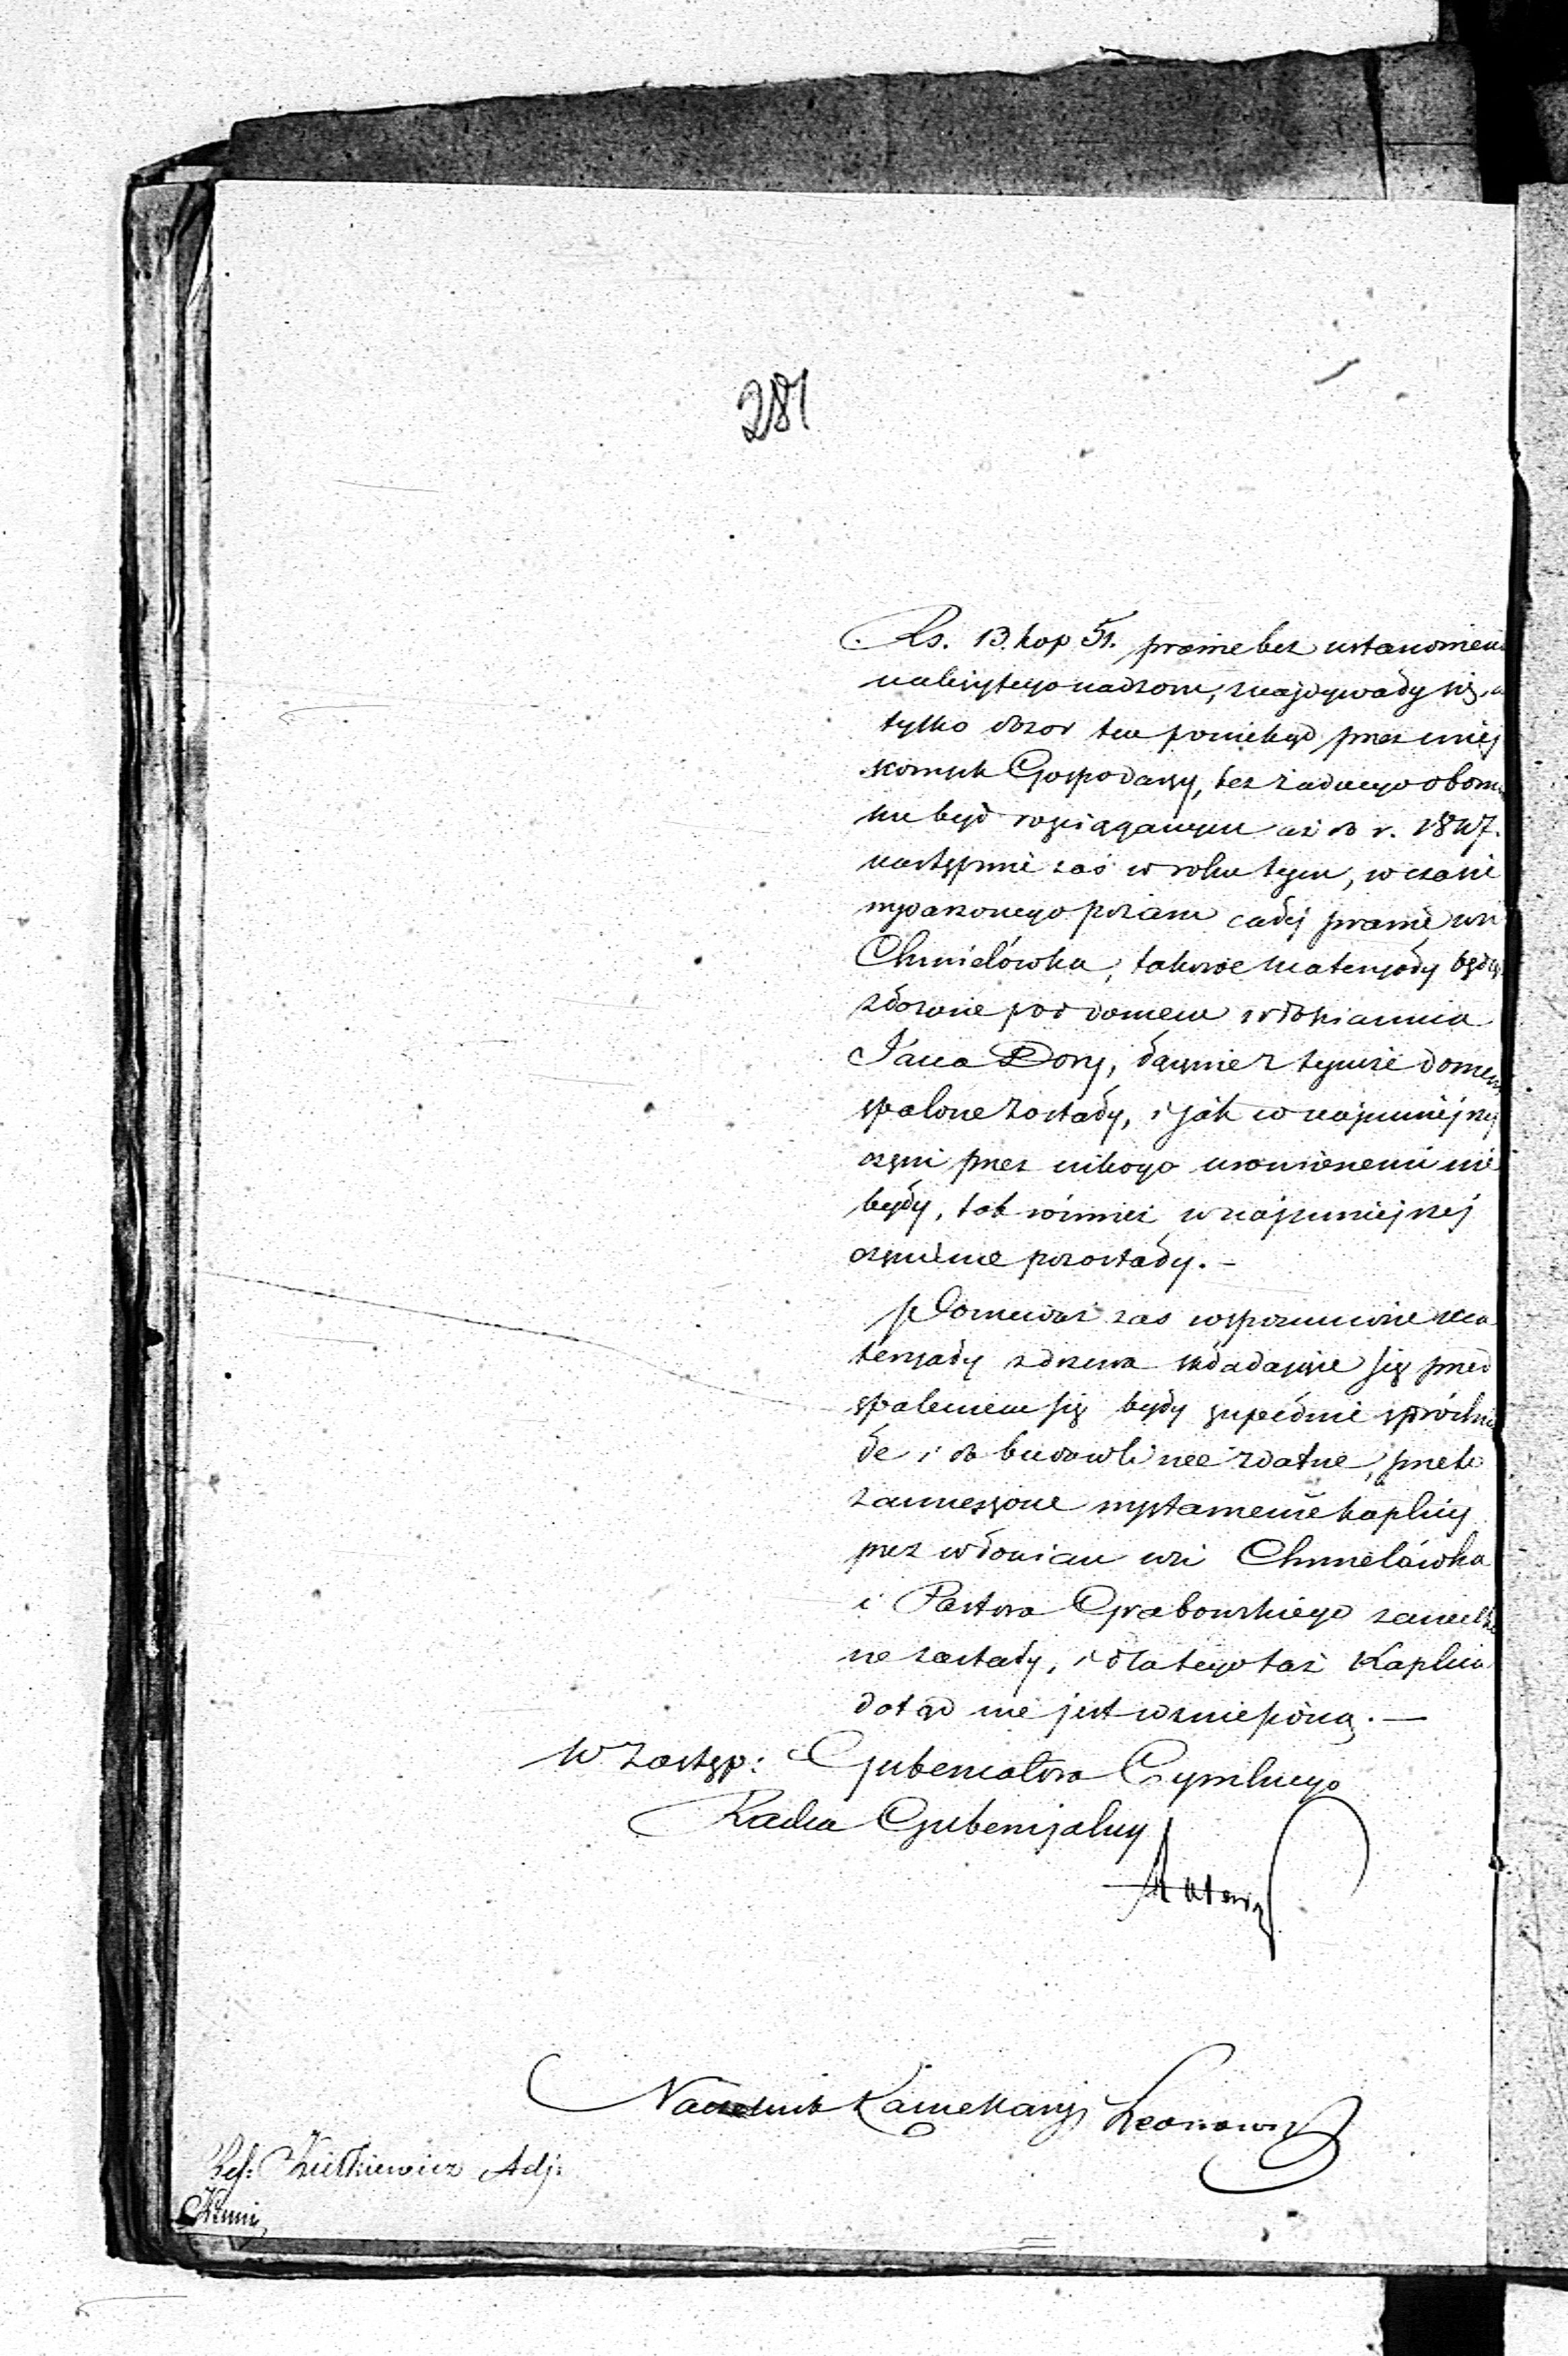 281
Rs. 13. kop 51. prawie bez ustanowieni
należytego nadzoru, znajdywały się, a
tylko dozór ten poniekąd przez miej
scowych Gospodarzy, bez żadnego obowią
ku był rozciąganym aż do r. 1847.
następnie zaś w roku tym, w czasie
wydarzonego pożaru całej prawie wsi
Chmielówka, takowe materyały będąc
złożone pod domem włościanina
Jana Dory, łącznie z tymże domem
spalone zostały, i jak w najmniejszej
części przez nikogo uronionemi nie
były, tak również w najmniejszej
części nie pozostały. –
Ponieważ zaś wspomnione ma
teryały z drzewa składające się przed
spaleniem się były zupełnie spróchnia
łe i do budowli nie zdatne, przeto
zamierzone wystawienie kaplicy
przez włościan wsi Chmielówka
i Pastora Grabowskiego zaniecha
ne zostały, i dla tego taż Kaplica
dotąd nie jest wzniesioną. —
W Zastęp: Gubernatora Cywilnego
Radca Gubernjalny
Naczelnik Kancellaryi
Ref: Adj: